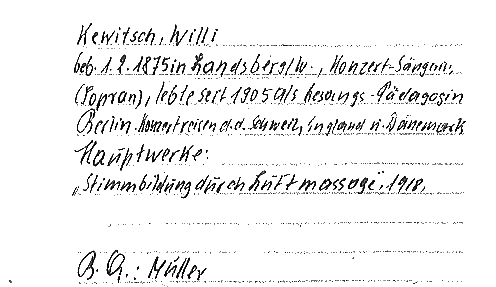 Kewitsch, Willi
geb. 1.2.1875 in Landsberg/W., Konzert-Sängerin,
(Sopran), lebte seit 1905 als Gesangs-Pädagogin
Berlin. Konzertreisen d.d. Schweiz, England u. Dänemark
Hauptwerke:
„Stimmbildung durch Luftmassage", 1918,
B. A.: Müller